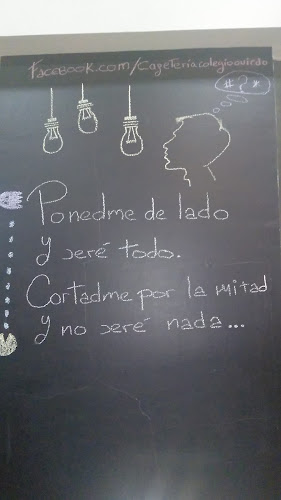 Facebook.com/Cafeteríacolegiooviedo
*?*
Ponedme de lado
y seré todo.
Cortadme por la mitad
y no seré nada...